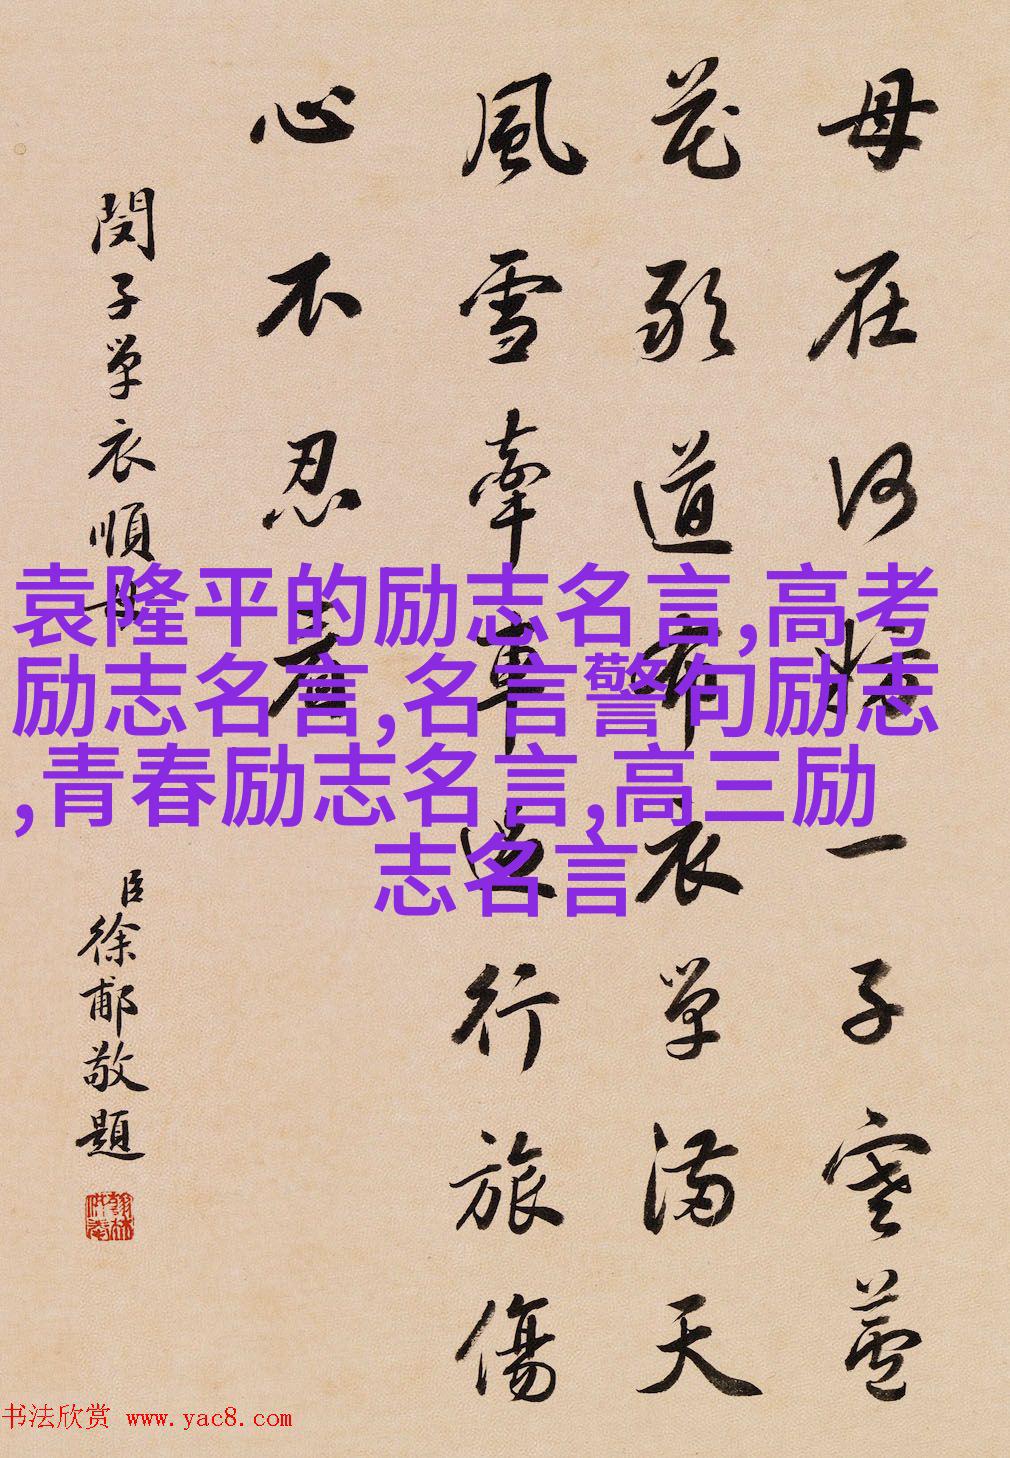 母在何一子寒蘆
花道布衣單滿天
風雪牽車行旅傷
心不忍看
閔子單衣順母
臣徐郙敬題
袁隆平的励志名言,高考
励志名言,名言警句励志
,青春励志名言,高三励
志名言
书法欣赏 www.yac8.com